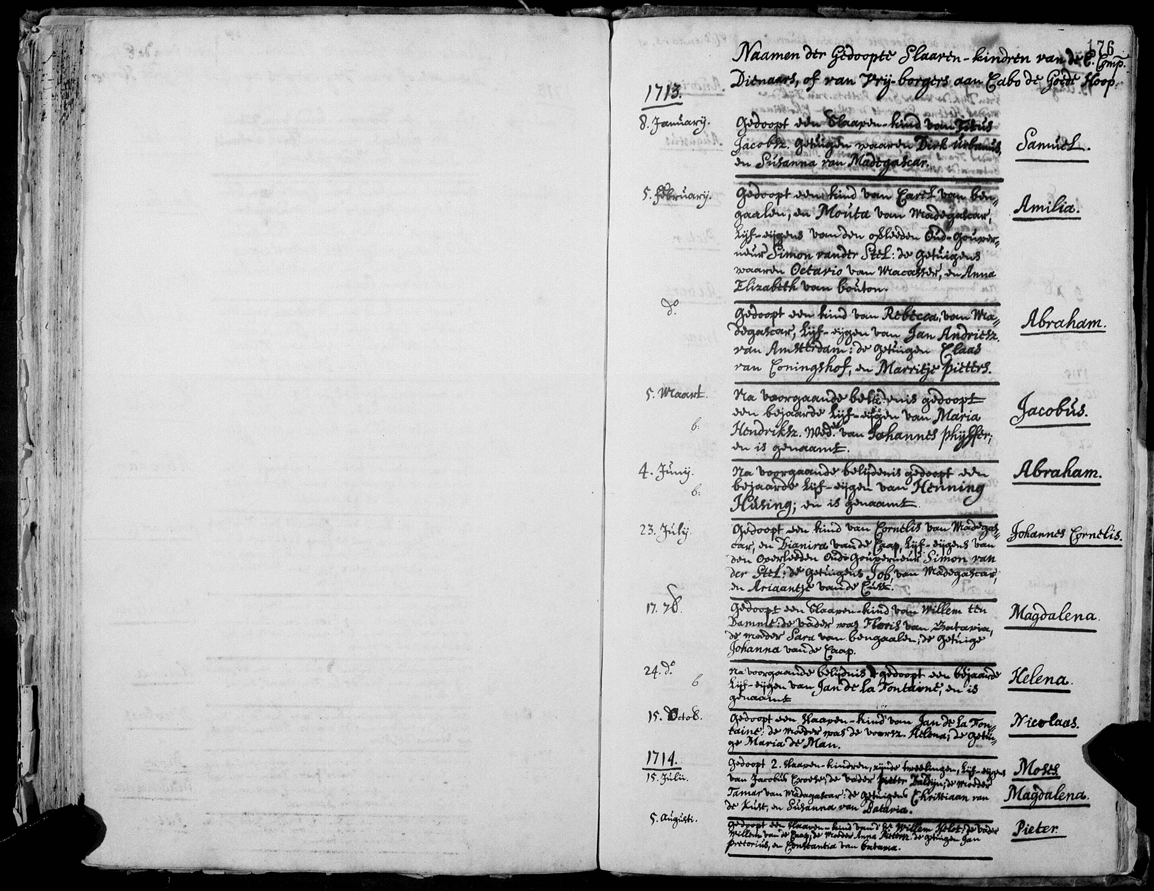 176
Naamen der Gedoopte Slaaven-kindren van de E. Comp.
Dienaars, of van Vrij-borgers aan Cabo de Goede Hoop.
1713.
8. January. Gedoopt een Slaaven-kind van Titus
Jacobsz. getuigen waaren Dirk Urbanus, Samuel.
en Susanna van Madegascar.
5. February. Gedoopt een kind van Carel van ben-
gaalen, en Mouta van Madegascar, Amilia.
Lijf-eijgens van den Oud-Gouver-
neur Simon vander Stel: de getuigens
waaren Octavio van Macasser, en Anna
Elizabeth van bouton.
do. Gedoopt een kind van Rebecca, van Ma-
degascar, Lijf-eijgen van Jan Andriesz. Abraham.
van Amsterdam: de getuigen Claas
van Coningshof, en Marritje pieters.
5. Maart. Na voorgaande belijdenis gedoopt
een bejaarde Lijf-eijgen van Maria Jacobus.
6. Hendriksz. Wede. van Johannes phijffer;
en is genaamt.
4. Junij. Na voorgaande belijdenis gedoopt een Abraham.
6. bejaarde Lijf-eijgen van Henning
Hüsing; en is genaamt.
23. July. Gedoopt een kind van Cornelis van Madegas- Johannes Cornelis.
car, en Dianira van de Caap, Lijf-eijgens van
den Overledden Oud-Gouverneur Simon van
der Stel; de getuigens Job, van Madegascar,
en Ariaantje van de Cust.
17. 7b. Gedoopt een Slaaven-kind van Willem ten Magdalena.
Damme; de vader was Floris van Batavia,
de moeder Sara van bengaalen, de getuige
Johanna van de Caap.
24. do. Na voorgaande belijdenis gedoopt een bejaarde Helena.
6 Lijf-eijgen van Jan de la Fontaine, en is
genaamt
15. Octob. Gedoopt een Slaaven-kind van Jan de la Fon- Nicolaas.
taine; de moeder was de voorsz. Helena; de getui-
ge Maria de Man.
1714. Gedoopt 2. Slaaven-kindren, zijnde tweelingen, Lijf-eijgens Moses
15. Julii. van Jacobus de vader pieter de moeder
Tamar van Madagascar: de getuigens Christiaan van Magdalena.
de Kust, en Susanna van Batavia.
5. Augusti. Gedoopt een Slaaven-kind van Willem de vader Pieter.
Willem van de Caap, de moeder Anna de getuigen Jan
pretorius, en Constantia van batavia.